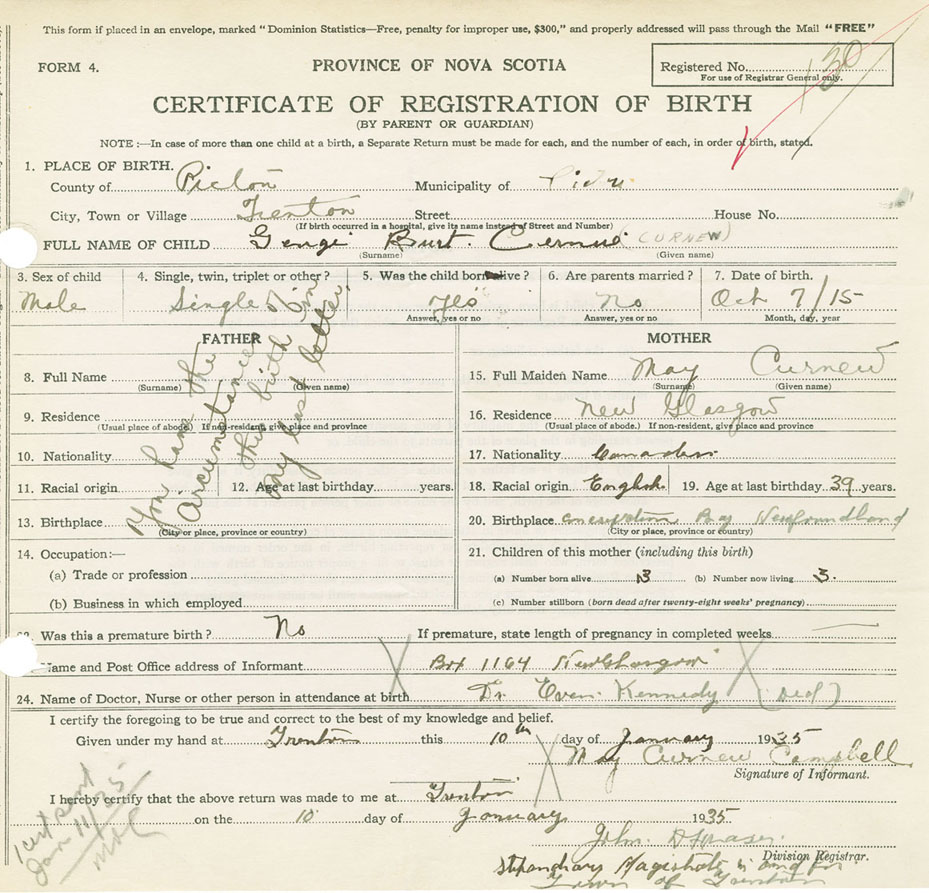 This form if placed in an envelope, marked "Dominion Statistics—Free, penalty for improper use, $300," and properly addressed will pass through the Mail "FREE"
FORM 4.
PROVINCE OF NOVA SCOTIA
Registered No. 130
For use of Registrar General only.
CERTIFICATE OF REGISTRATION OF BIRTH
(BY PARENT OR GUARDIAN)
NOTE :—In case of more than one child at a birth, a Separate Return must be made for each, and the number of each, in order of birth, stated.
1. PLACE OF BIRTH.
County of Pictou Municipality of Pictou
City, Town or Village Trenton Street House No.
(If birth occurred in a hospital, give its name instead of Street and Number)
FULL NAME OF CHILD Burt. (CURNEW)
(Surname) (Given name)
3. Sex of child 4. Single, twin, triplet or other ? 5. Was the child born alive ? 6. Are parents married ? 7. Date of birth.
Male Single Yes No Oct 7/15
Answer, yes or no Answer, yes or no Month, day, year
FATHER
8. Full Name
(Surname) (Given name)
9. Residence
(Usual place of abode.) If non-resident, give place and province
10. Nationality
11. Racial origin 12. Age at last birthday years.
13. Birthplace
(City or place, province or country)
14. Occupation:—
(a) Trade or profession
(b) Business in which employed
You have the
circumstances of
this birth in
my last letter.
MOTHER
15. Full Maiden Name May Curnew
(Surname) (Given name)
16. Residence New Glasgow
(Usual place of abode.) If non-resident, give place and province
17. Nationality Canadian
18. Racial origin English 19. Age at last birthday 39 years.
20. Birthplace Bay Newfoundland
(City or place, province or country)
21. Children of this mother (including this birth)
(a) Number born alive 3 (b) Number now living 3.
(c) Number stillborn (born dead after twenty-eight weeks' pregnancy)
Was this a premature birth ? No If premature, state length of pregnancy in completed weeks
Name and Post Office address of Informant Box 1164 New Glasgow
24. Name of Doctor, Nurse or other person in attendance at birth Dr Even Kennedy (Ded)
I certify the foregoing to be true and correct to the best of my knowledge and belief.
Given under my hand at Trenton this 10th day of January 1935
May Curnew Campbell
Signature of Informant.
I hereby certify that the above return was made to me at Trenton
on the 10 day of January 1935
John D Fraser
Division Registrar.
Stipendiary Magistrate in and for
Town of Trenton
1 cert sent
Jan 11/35